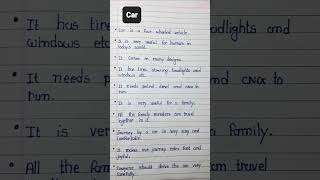 Car
Car is a four wheeled vehicle.
It is very useful for humans in
today's world.
It comes in many designs.
It has tires, steering, headlights and
windows etc.
It needs petrol, diesel and CNG to
run.
It is very useful for a family.
All the family members can travel
together in it.
Journey by a car is very easy and
comfortable.
It makes our journey fast and
joyful.
Everyone should drive the car very
carefully.
It has tire
windows etc
It needs
run.
It is ver
All the
eadlights and
and CNG to
a family.
travel